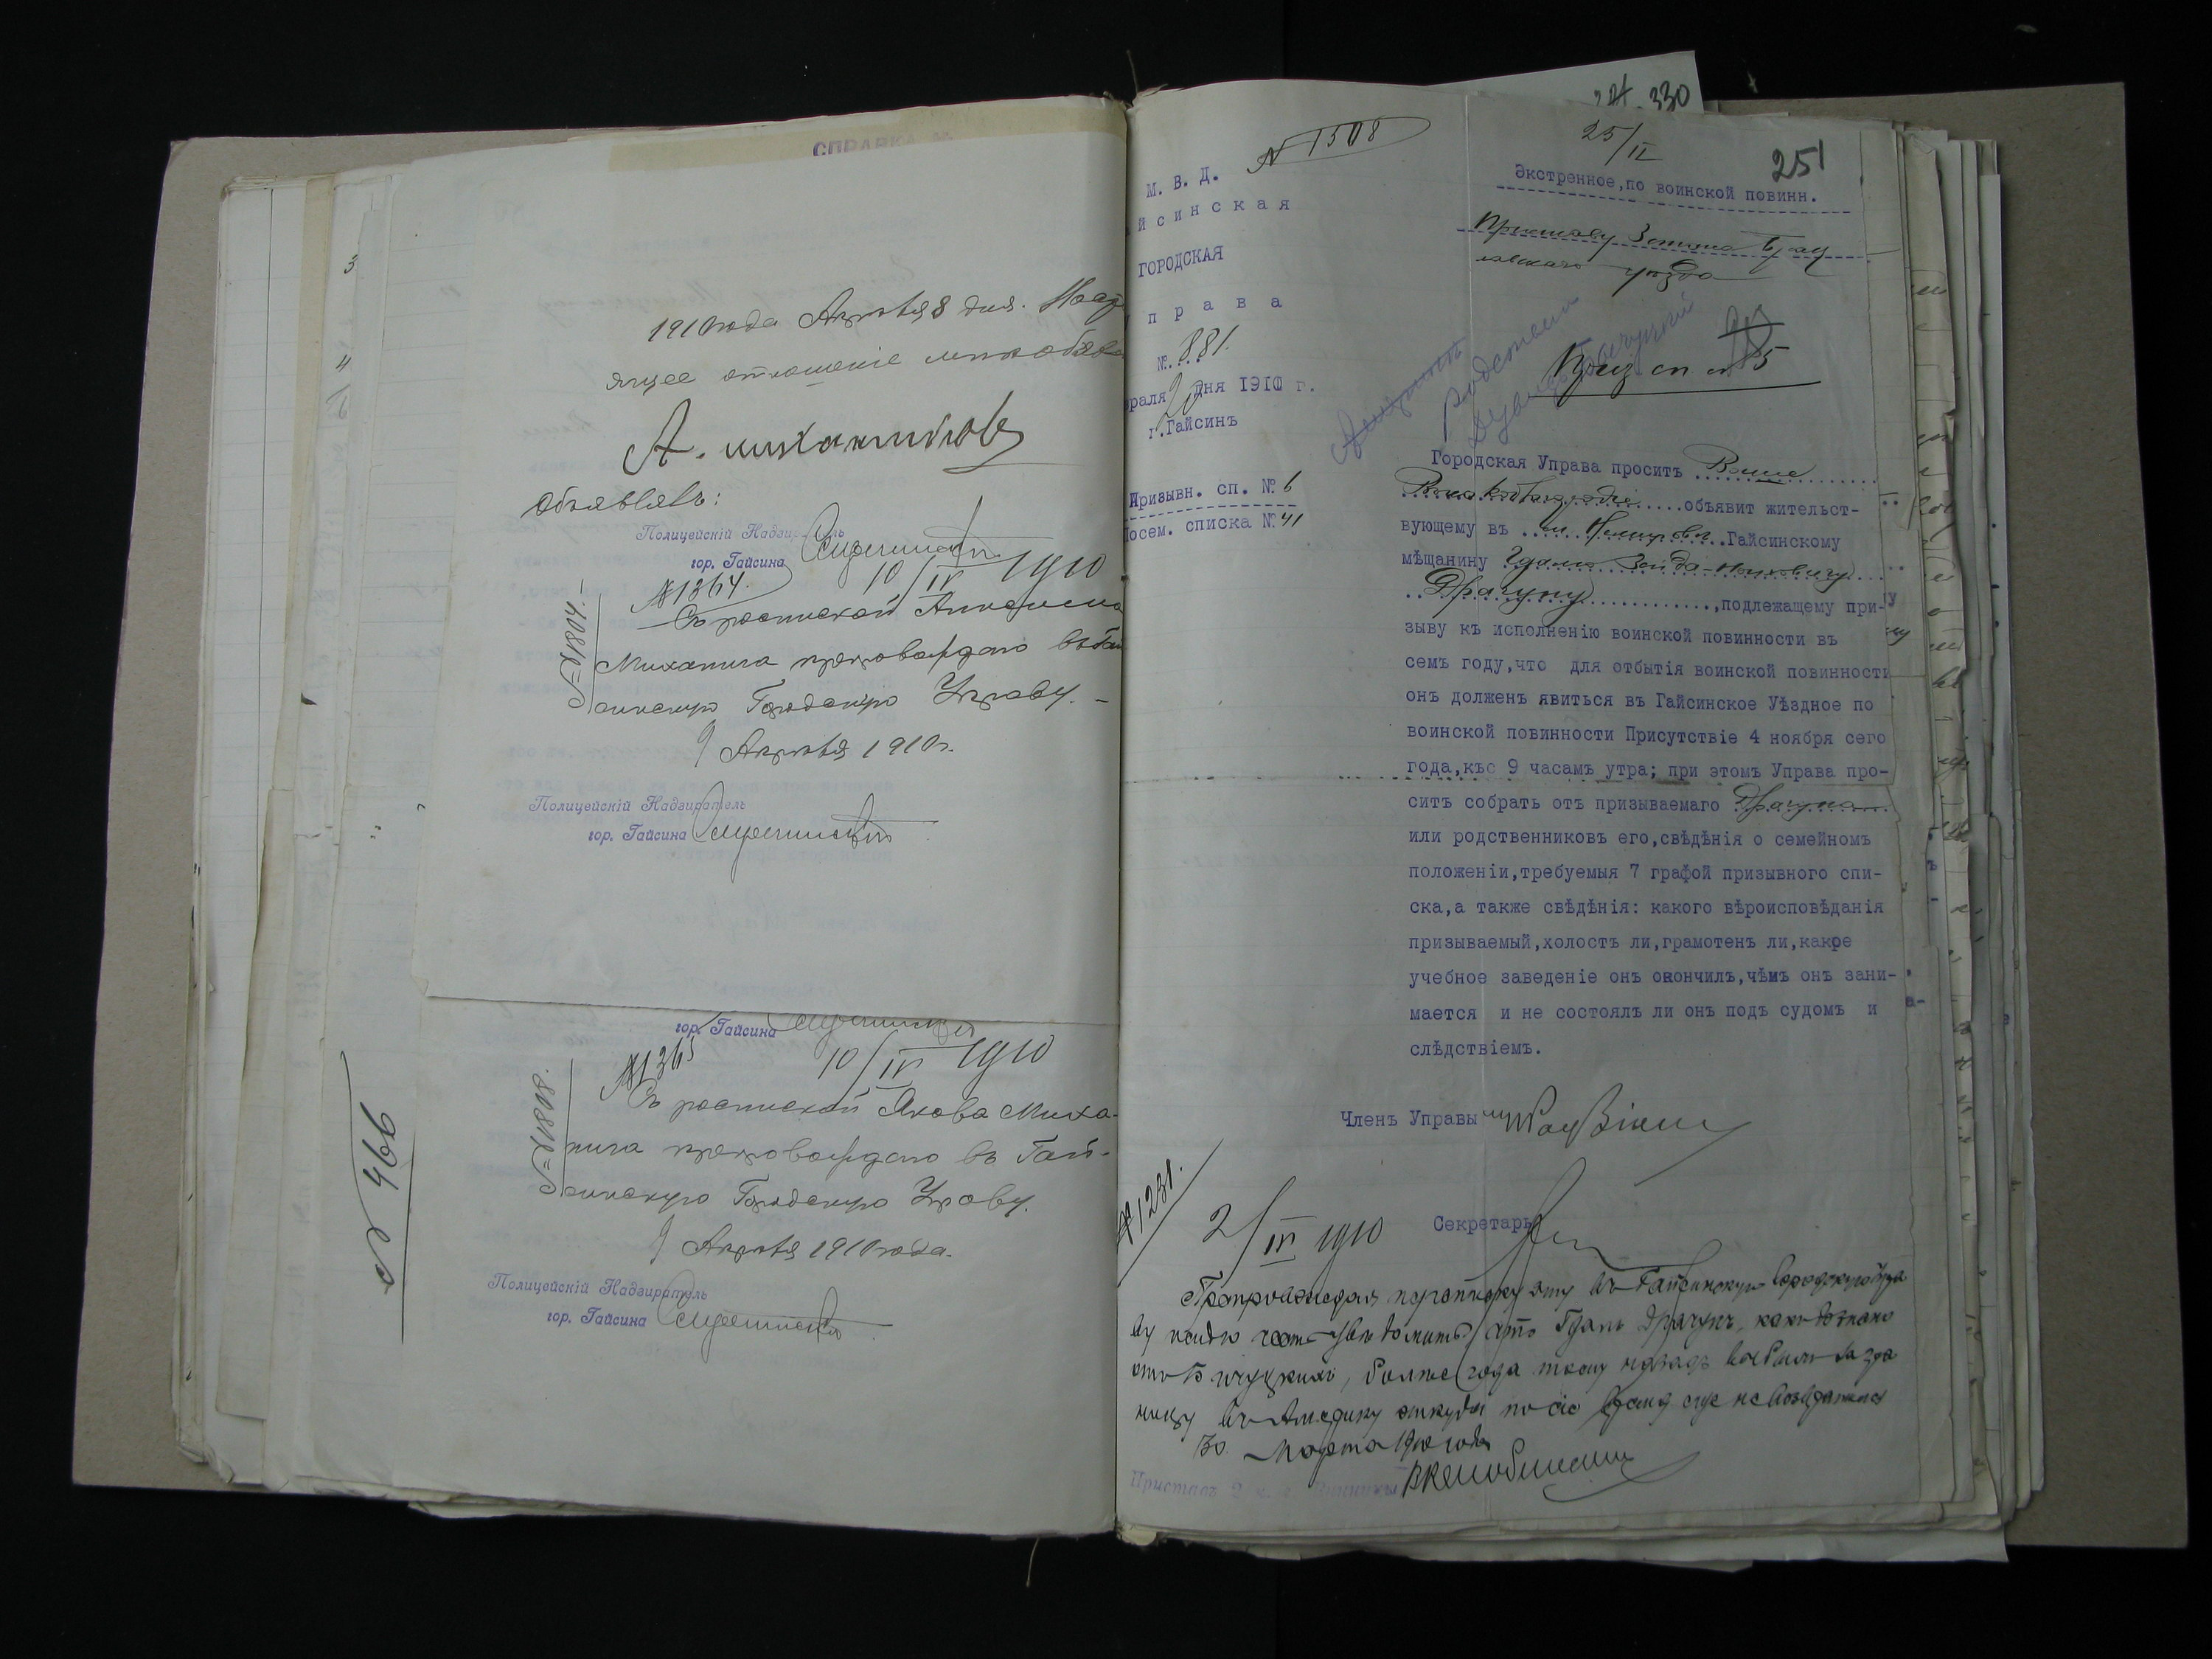 СПРАВКА
3
4
№ 466
1910 года Апрѣля 8 дня. Наст
ящее отношеніе мнѣ объяв
А. михантьев
Объявлялъ:
Полицейскій Надзиратель
гор. Гайсина
№ 1364. 10/IV 1910
№ 1804.
Съ роспиской
Миханича препровождаю въ Гай
синскую Городскую Управу.
9 Апрѣля 1910 г.
Полицейскій Надзиратель
гор. Гайсина
гор. Гайсина
№ 1365 10/IV 1910
№ 1808.
Съ роспиской Якова Миха-
нича препровождаю въ Гай-
синскую Городскую Управу.
9 Апрѣля 1910 года.
Полицейскій Надзиратель
гор. Гайсина
330
№ 1508
25/II
251
М. В. Д.
йсинская
ГОРОДСКАЯ
права
№ 881.
враля 20 дня 1910 г.
г. Гайсинъ
Призывн. сп. № 6
Посем. списка № 41
Экстренное, по воинской повинн.
Приставу 2 стана Брац
лавскаго уѣзда
Приз сп № 5
Городская Управа проситъ Ваше
Высокоблагородіе объявит жительст-
вующему въ м. Немировѣ Гайсинскому
мѣщанину Гдалю Зейда-Ноиховичу
Драчуну, подлежащему при-
зыву къ исполненію воинской повинности въ
семъ году, что для отбытія воинской повинности
онъ долженъ явиться въ Гайсинское Уѣздное по
воинской повинности Присутствіе 4 ноября сего
года, къ 9 часамъ утра; при этомъ Управа про-
ситъ собрать отъ призываемаго Драчуна
или родственниковъ его, свѣдѣнія о семейномъ
положеніи, требуемыя 7 графой призывного спи-
ска, а также свѣдѣнія: какого вѣроисповѣданія
призываемый, холостъ ли, грамотенъ ли, какое
учебное заведеніе онъ окончилъ, чѣмъ онъ зани-
мается и не состоялъ ли онъ подъ судомъ и
слѣдствіемъ.
Членъ Управы
Секретарь
№ 1231.
2/III 1910
Препровождая переписку эту въ Гайсинскую Городскую Упра
ву имѣю честь увѣдомить, что Гдаль Драчунъ, какъ дознано
болѣе года тому назадъ выбылъ за гра
ницу въ Америку откуда по сіе время еще не возвратился
Марта 1910 года
Приставъ 2